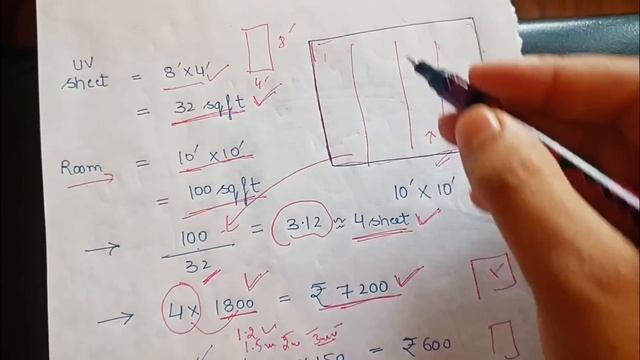 UV sheet = 8' × 4'
= 32 sqft
8'
4'
Room = 10' × 10'
= 100 sqft
10' × 10'
→ 100/32 = 3.12 ≈ 4 sheet
→ 4 × 1800 = ₹ 7200
1.2
1.5
150 = ₹600